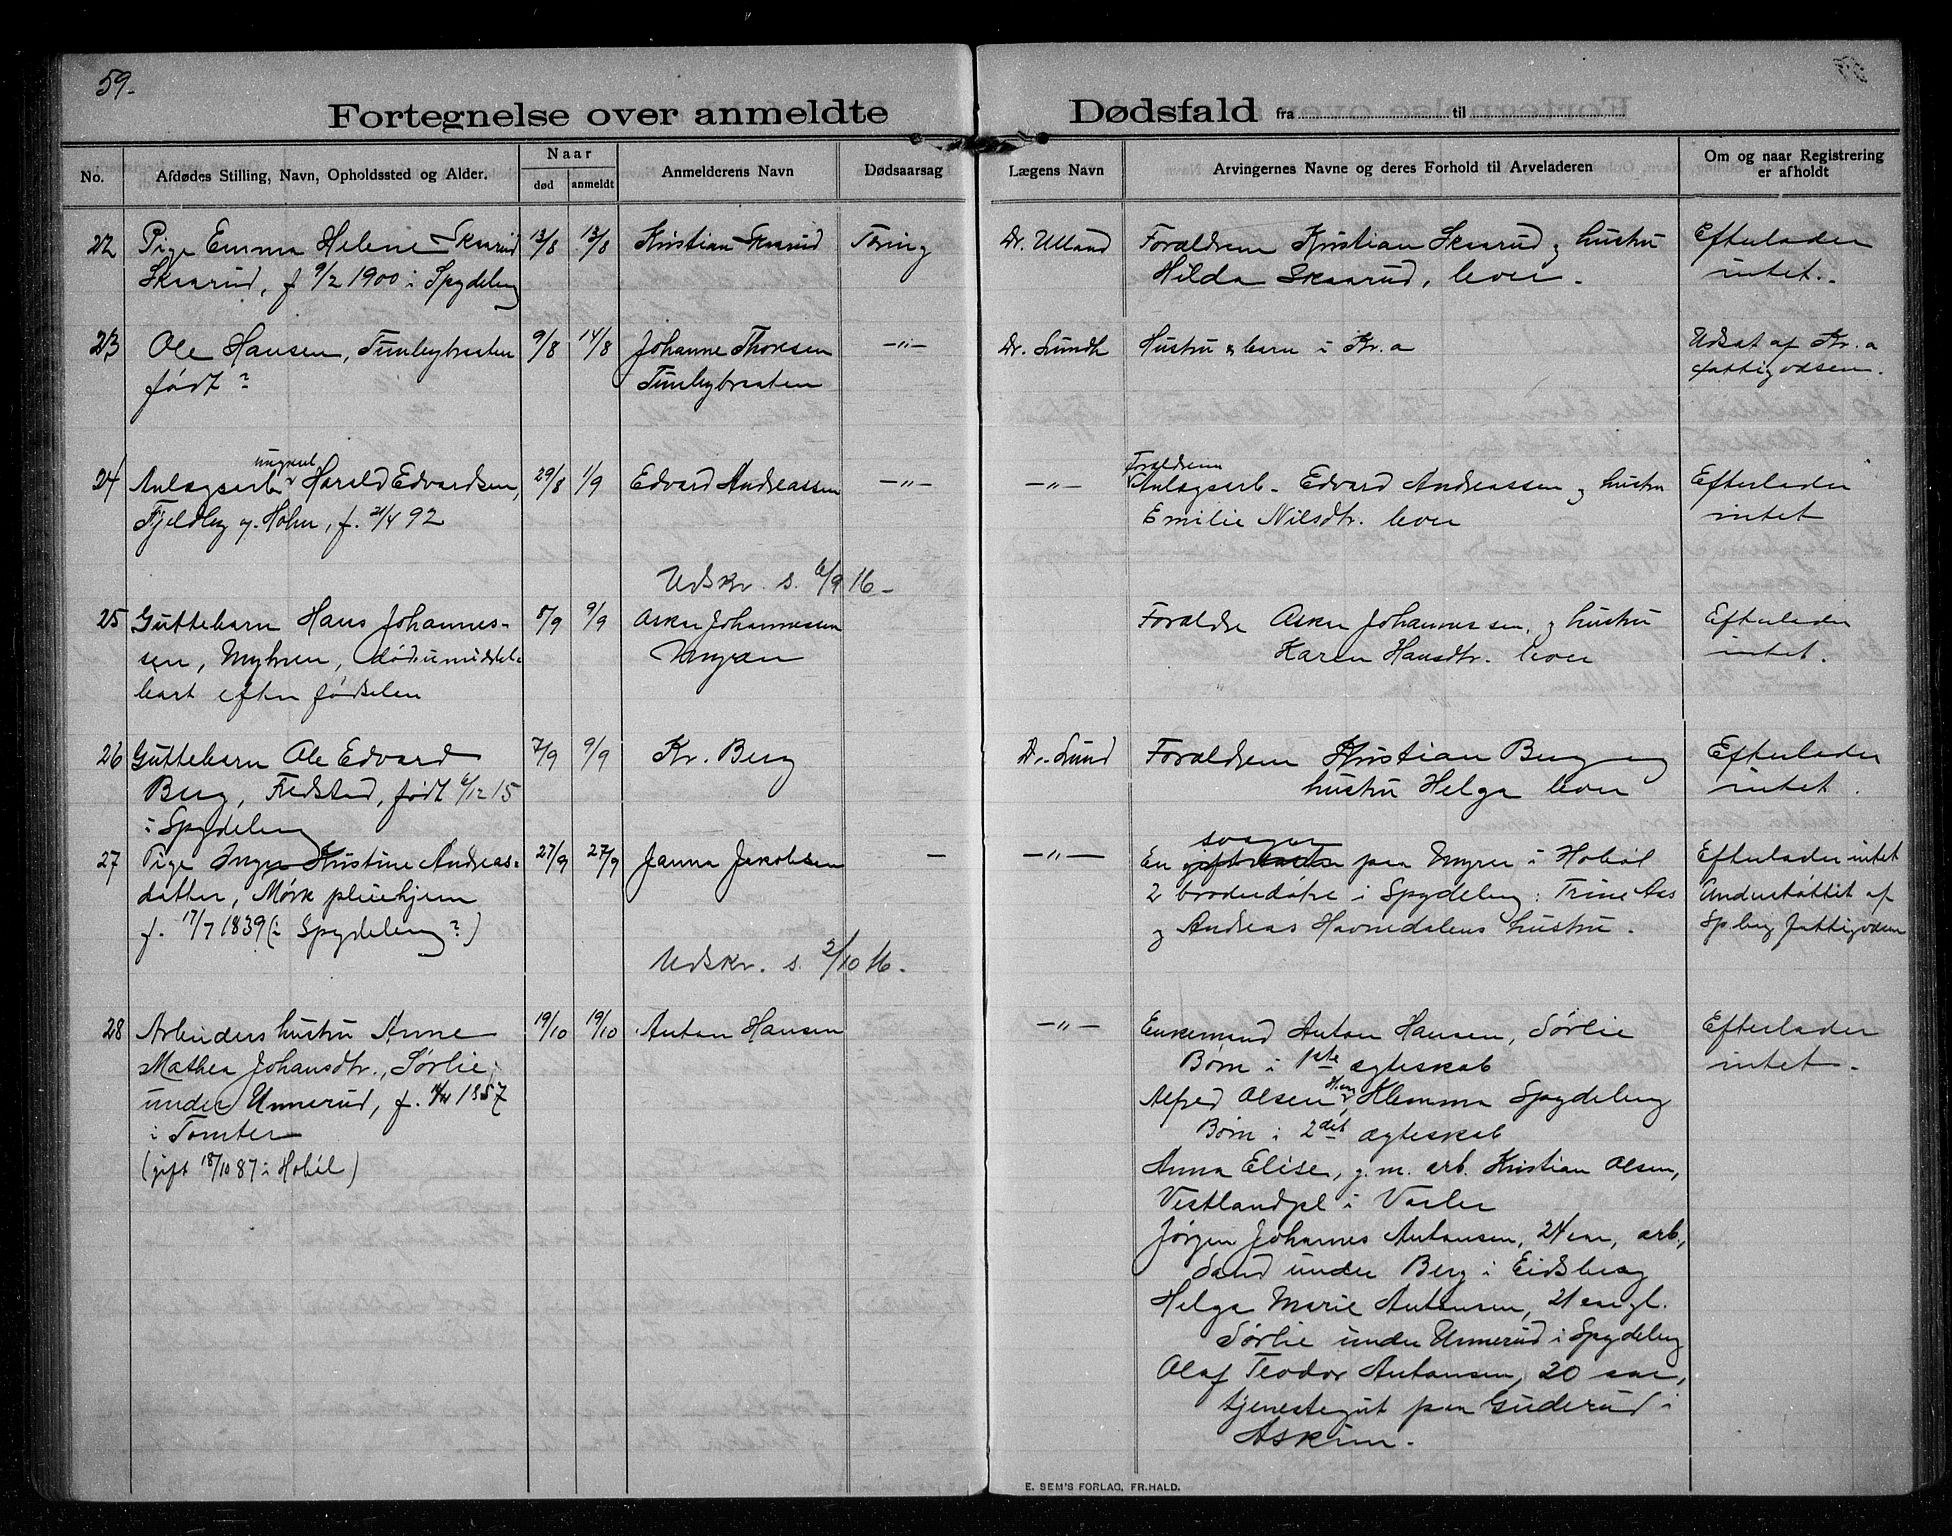 59.
Fortegnelse over anmeldte Dødsfald fra til
No.
Afdødes Stilling, Navn, Opholdssted og Alder.
Naar
død
anmeldt
Anmelderens Navn
Dødsaarsag
Lægens Navn
Arvingernes Navne og deres Forhold til Arveladeren
Om og naar Registrering
er afholdt
22 Pige Emma Helene Skaarud 13/8 13/8 Kristian Skaarud Tæring Dr. Ulland Forældrene Kristian Skaarud og hustru Efterlader
Skaarud, f 9/2 1900 i Spydeberg Hilda Skaarud, lever. intet.
23 Ole Hansen, Tunbybraaten 9/8 14/8 Johanne Thoresen —"— Dr. Lundh Hustru og barn i Kr.a Udsat af Kr.a
født? Tunbybraaten fattigvæsen.
24 Anlægsarb. ungkarl Harald Edvardsen, 29/8 1/9 Edvard Andreassen —"— —"— Forældrene Anlægsarb. Edvard Andreassen og hustru Efterlader
Fjeldby g. Holm, f. 21/4 92 Emilie Nilsdtr. lever intet
Udskr. s. 6/9 16—
25 Guttebarn Hans Johannes- 8/9 9/9 Asker Johannessen Forældre Asker Johannessen, og hustru Efterlader
sen, Myhren, død umiddel- Karen Hansdtr. lever intet.
bart efter fødselen
26 Guttebarn Ole Edvard 7/9 9/9 Kr. Berg Dr. Lund Forældrene Kristian Berg og Efterlader
Berg, Fredstad, født 6/12 15 hustru Helga lever intet.
i Spydeberg
27 Pige Inger Kristine Andreas- 27/9 27/9 Janna Jakobsen — —"— En svoger paa Myrer i Hobøl Efterlader intet
datter, Mørk pleiehjem 2 broderdøtre i Spydeberg: Trine Aas Understøttet af
f. 17/7 1839 (i Spydeberg?) og Andreas Havnedalens hustru. Spberg fattigvæsen
Udskr. s. 2/10 16.
28 Arbeiders hustru Anne 19/10 19/10 Anton Hansen —"— Enkemand Anton Hansen, Sørlie Efterlader
Mathea Johansdtr., Sørlie, Børn i 1ste ægteskab intet.
under Unnerud, f. 1857 Alfred Olsen, Klemma Spydeberg
i Tomter Børn i 2det ægteskab
(gift 18/10 87 i Hobøl) Anna Elise, g. m. arb. Kristian Olsen,
Vestlandpl i Vaaler
Jørgen Johannes Antonsen, 24 aar, arb.,
Sand under Berg i Eidsberg
Helga Marie Antonsen, 21 aar gl.
Sørlie under Unnerud i Spydeberg
Olaf Teodor Antonsen, 20 aar,
tjenestegut paa Guderud i
Askim.
E. SEM'S FORLAG, FR.HALD.